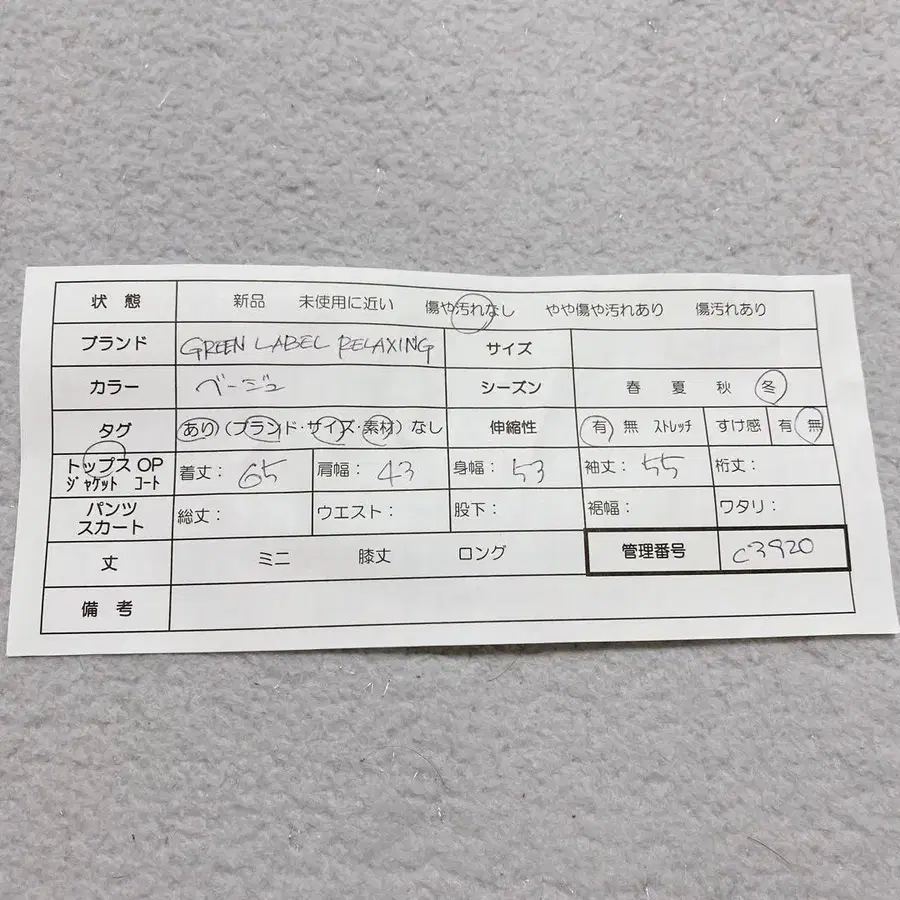 状 態 新品 未使用に近い 傷や汚れなし やや傷や汚れあり 傷汚れあり
ブランド GREEN LABEL RELAXING サイズ
カラー ベージュ シーズン 春 夏 秋 冬
タグ あり(ブランド・サイズ・素材) なし 伸縮性 有 無 ストレッチ すけ感 有 無
トップス OP 着丈: 65 肩幅: 43 身幅: 53 袖丈: 55 裄丈:
ジャケット コート
パンツ 総丈: ウエスト: 股下: 裾幅: ワタリ:
スカート
丈 ミニ 膝丈 ロング 管理番号 C3920
備 考